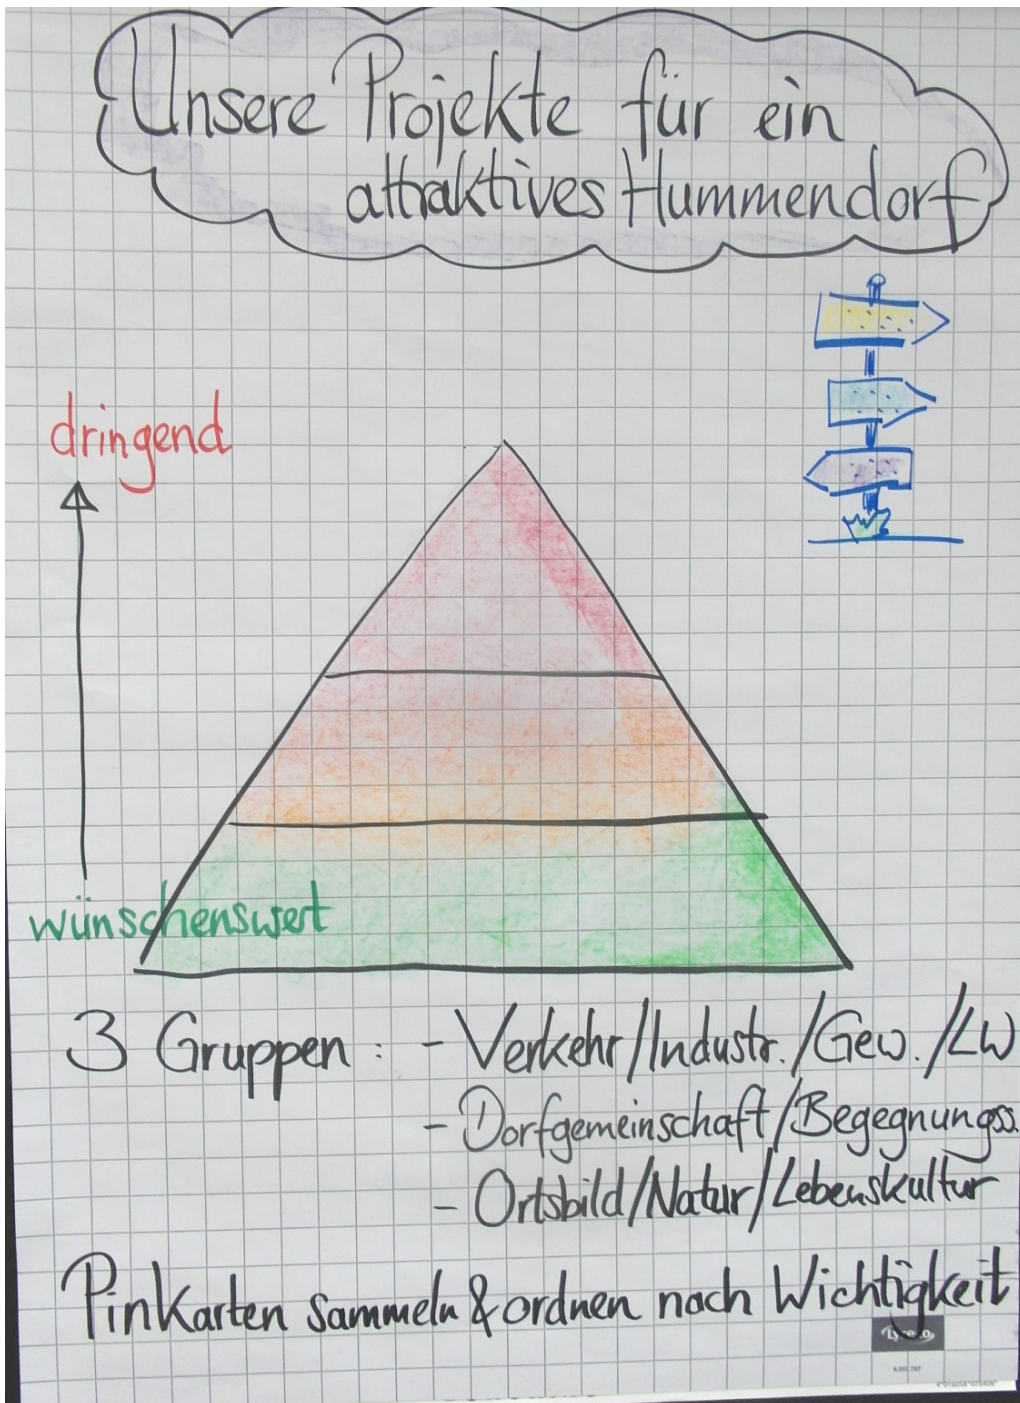 Unsere Projekte für ein
attraktives Hummendorf
dringend
wünschenswert
3 Gruppen: - Verkehr/Industr./Gew./LW
- Dorfgemeinschaft/Begegnungss.
- Ortsbild/Natur/Lebenskultur
PinKarten sammeln & ordnen nach Wichtigkeit